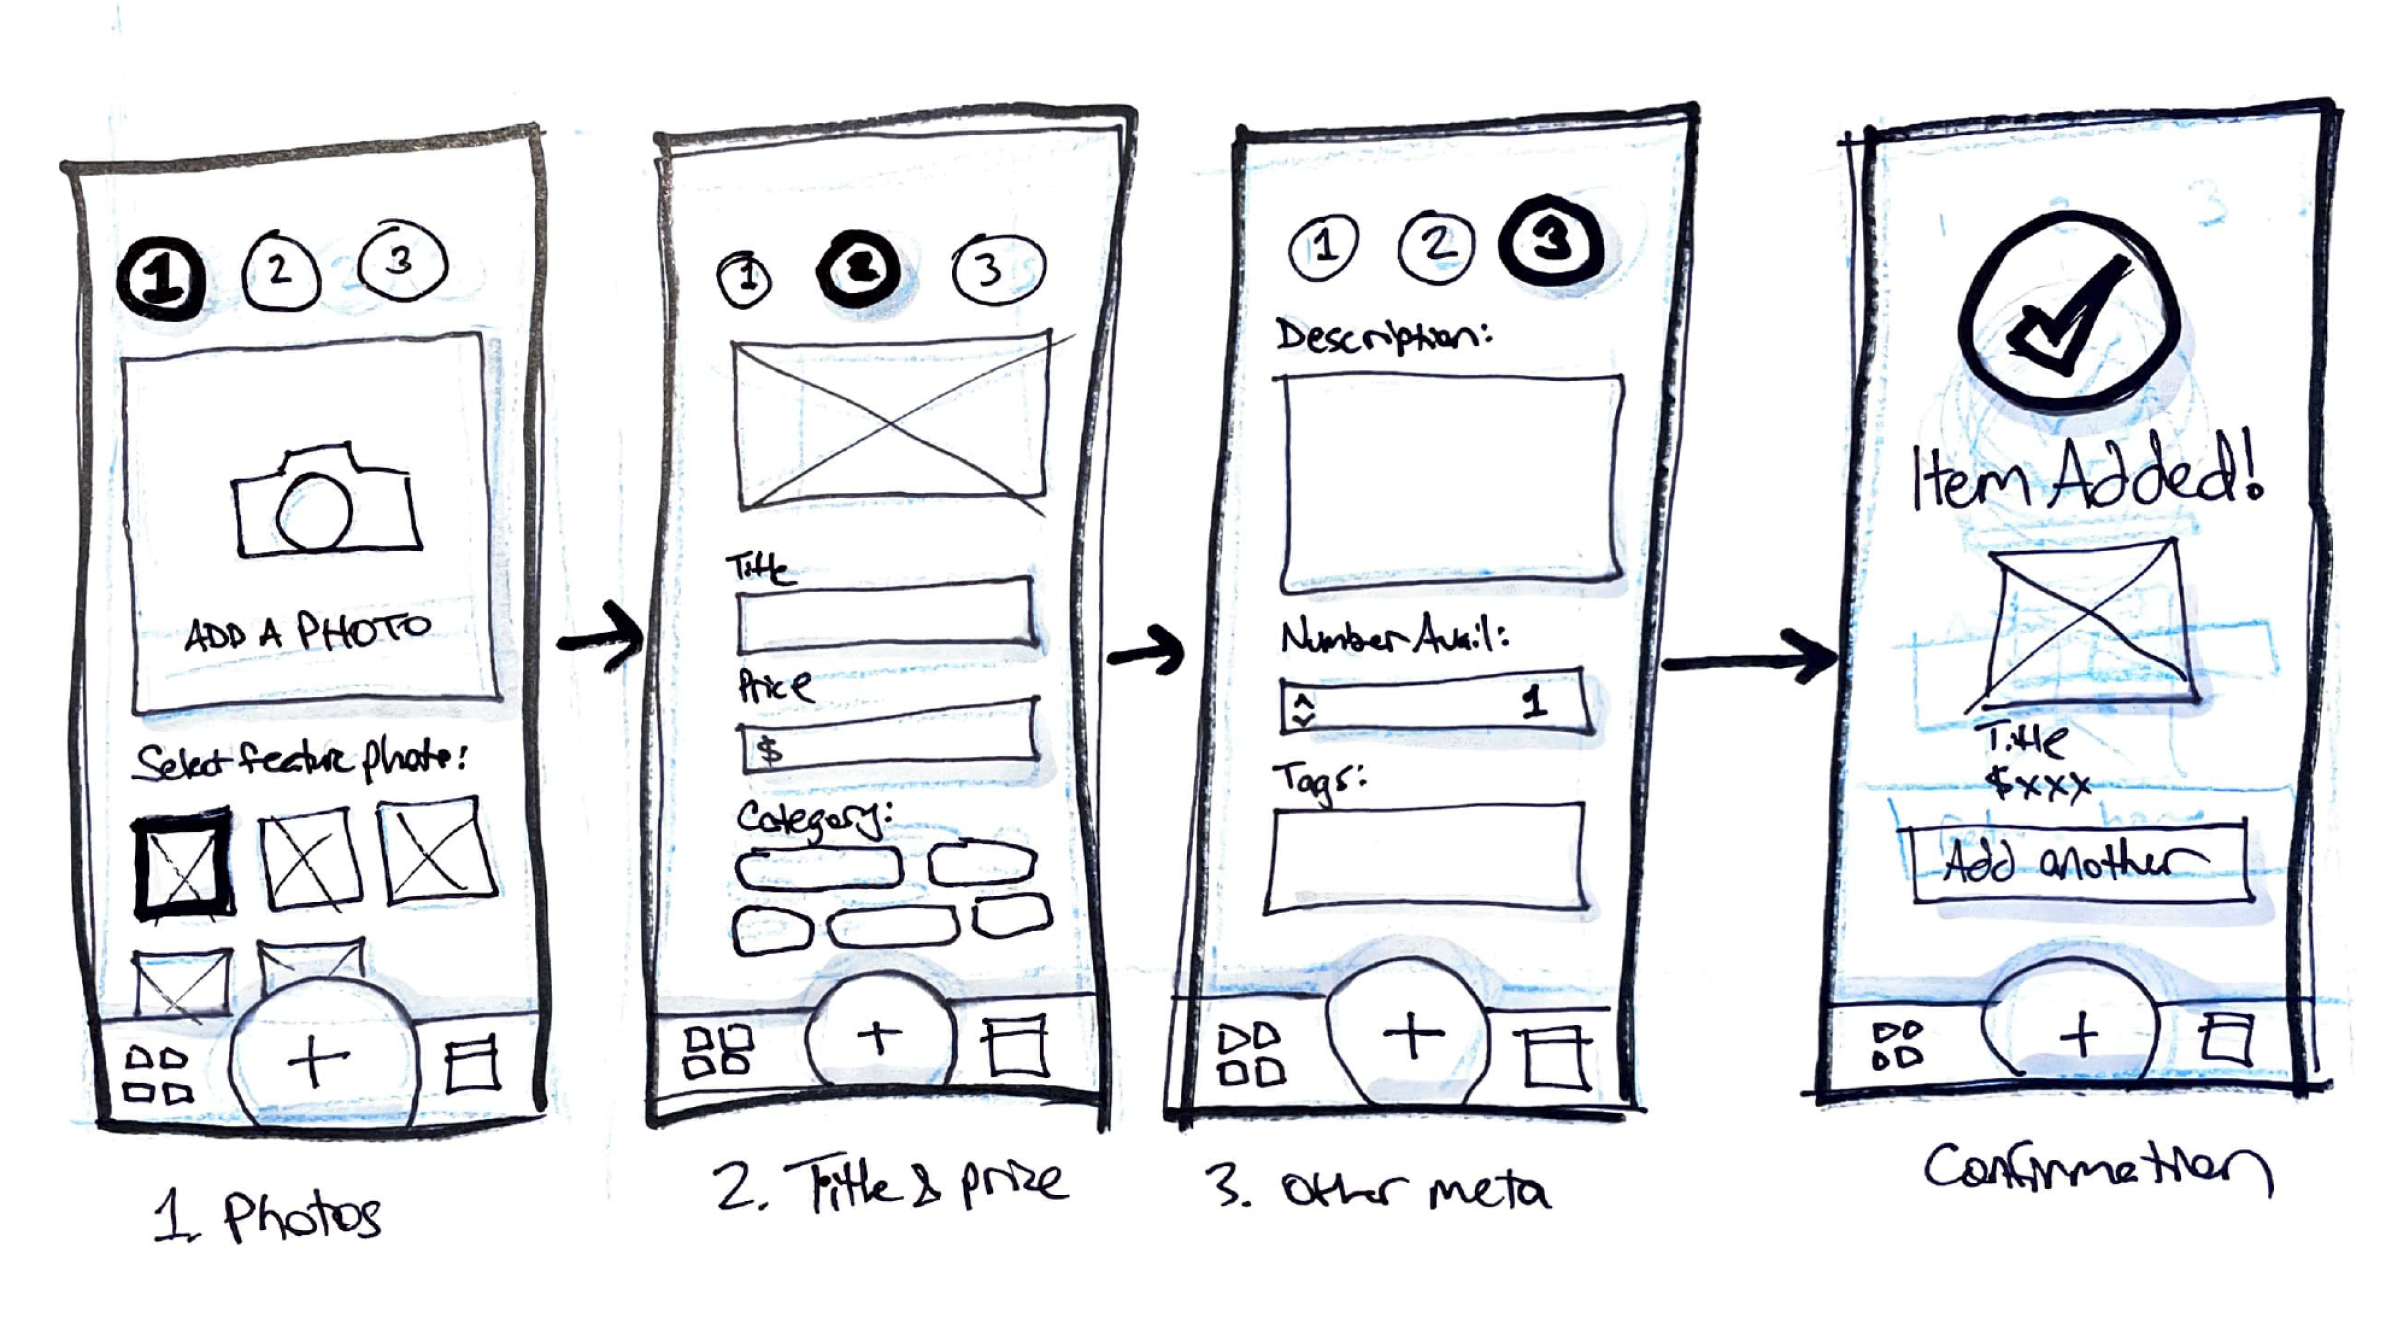 1 2 3
ADD A PHOTO
Select feature photo:
+
1. Photos
1 2 3
Title
Price
$
Category:
+
2. Title & prize
1 2 3
Description:
Number Avail:
1
Tags:
+
3. other meta
1 2 3
Item Added!
Title
$xxx
Add another
+
Confirmation